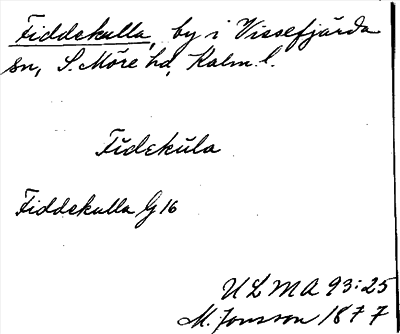 Fiddekulla, by i Vissefjärda
sn, S. Möre hd, Kalm. l.
Fīdekūla
Fiddekulla G 16
ULMA 93:25
M. Jonsson 1877